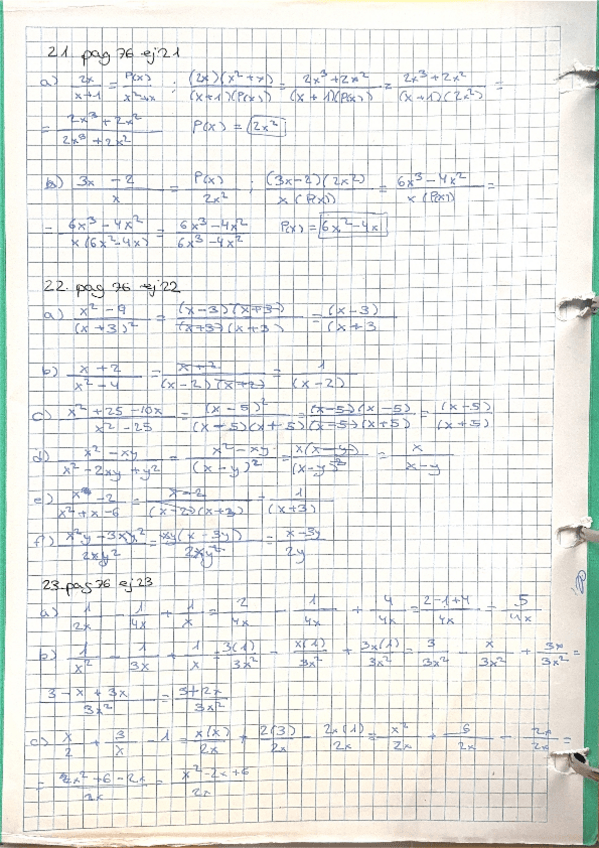 21. pag 76 ej 21
a) 2x/(x+1) = P(x)/(x²+x) ; (2x)(x²+x)/((x+1)(P(x))) = (2x³+2x²)/((x+1)(P(x))) = (2x³+2x²)/((x+1)(2x²)) =
= (2x³+2x²)/(2x³+2x²) P(x) = 2x²
b) (3x-2)/x = P(x)/2x² ; (3x-2)(2x²)/(x(P(x))) = (6x³-4x²)/(x(P(x))) =
= (6x³-4x²)/(x(6x²-4x)) = (6x³-4x²)/(6x³-4x²) P(x) = 6x²-4x
22. pag 76 ej 22
a) (x²-9)/(x+3)² = (x-3)(x+3)/((x+3)(x+3)) = (x-3)/(x+3
b) (x+2)/(x²-4) = (x+2)/((x-2)(x+2)) = 1/(x-2)
c) (x²+25-10x)/(x²-25) = (x-5)²/((x-5)(x+5)) = (x-5)(x-5)/((x-5)(x+5)) = (x-5)/(x+5)
d) (x²-xy)/(x²-2xy+y²) = (x²-xy)/(x-y)² = x(x-y)/(x-y)² = x/(x-y)
e) (x-2)/(x²+x-6) = (x-2)/((x-2)(x+3)) = 1/(x+3)
f) (x²y-3xy²)/2xy² = xy(x-3y)/2xy² = (x-3y)/2y
23. pag 76 ej 23
a) 1/2x - 1/4x + 1/x = 2/4x - 1/4x + 4/4x = (2-1+4)/4x = 5/4x
b) 1/x² - 1/3x + 1/x = 3(1)/3x² - x(1)/3x² + 3x(1)/3x² = 3/3x² - x/3x² + 3x/3x² =
(3-x+3x)/3x² = (3+2x)/3x²
c) x/2 + 3/x - 1 = x(x)/2x + 2(3)/2x - 2x(1)/2x = x²/2x + 6/2x - 2x/2x =
= (x²+6-2x)/2x = (x²-2x+6)/2x